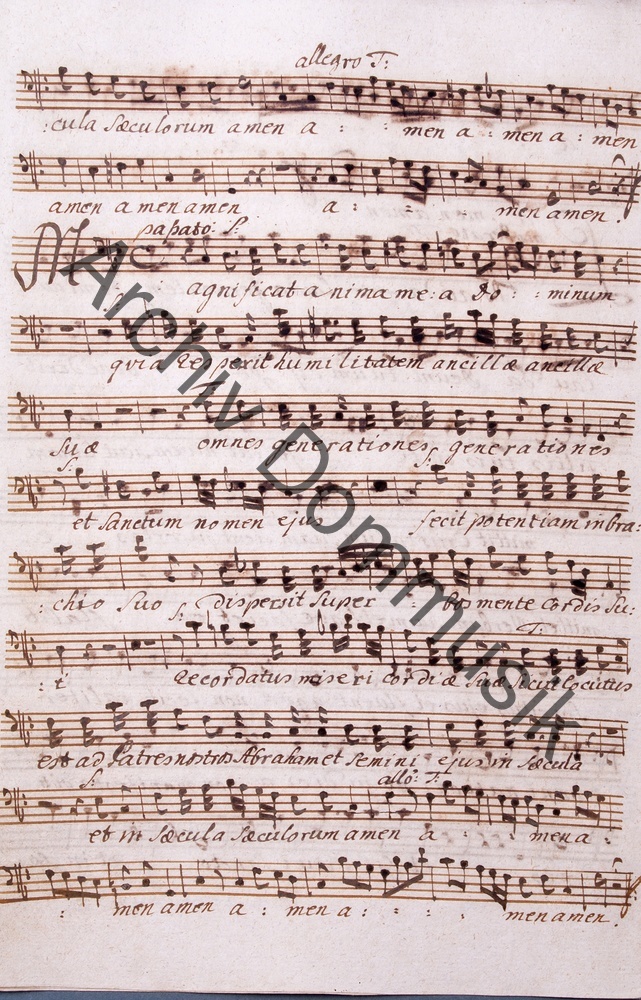 allegro T:
:cula Sæculorum amen a : : men a : men a : men
amen amenamen a : : menamen.
papato: S.
Magnificat anima me:a do : : minum
S.
quia Respexit humilitatem ancillæ ancillæ
suæ omnes generationes generationes
S: S:
et Sanctum nomen ejus fecit potentiam inbra:
:chio Suo dispersit Super : bos mente Cordis Su:
S: T:
: i Recordatus misericordiæ Suæ Sicut locutus
est ad Patres nostros Abraham et Semini ejus in Sæcula
S: allo: T:
et in Sæcula Sæculorum amen a : : mena :
: menamen a : men a : : : : menamen.
Archiv Dommusik